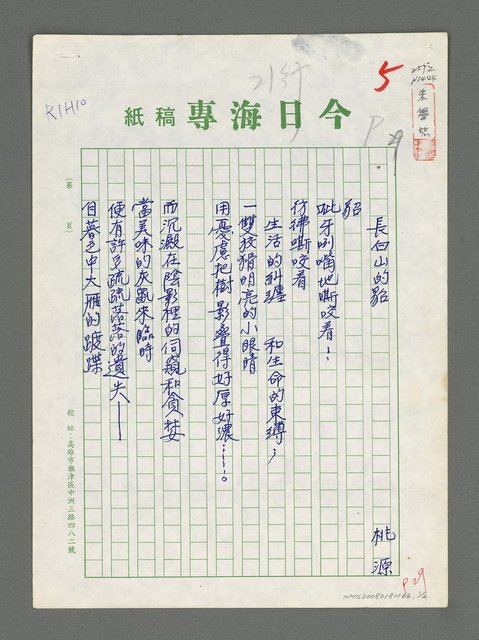 R1H10
5
P29
今日海專稿紙
朱學恕
長白山的貂
桃源
貂
呲牙咧嘴地嘶咬着…
彷彿嘶咬着
生活的糾纏 和生命的束縛；
一雙狡猾明亮的小眼睛
用憂慮把樹影疊得好厚好濃……。
而沉澱在陰影裡的伺窺和貪婪
當美味的灰鼠來臨時
便有許多疏疏落落的遺失——
自暮色中大雁的蹼蹀
（第 頁）
校址：高雄市旗津區中洲三路四八二號
P29
NMTL20080181166.1/2